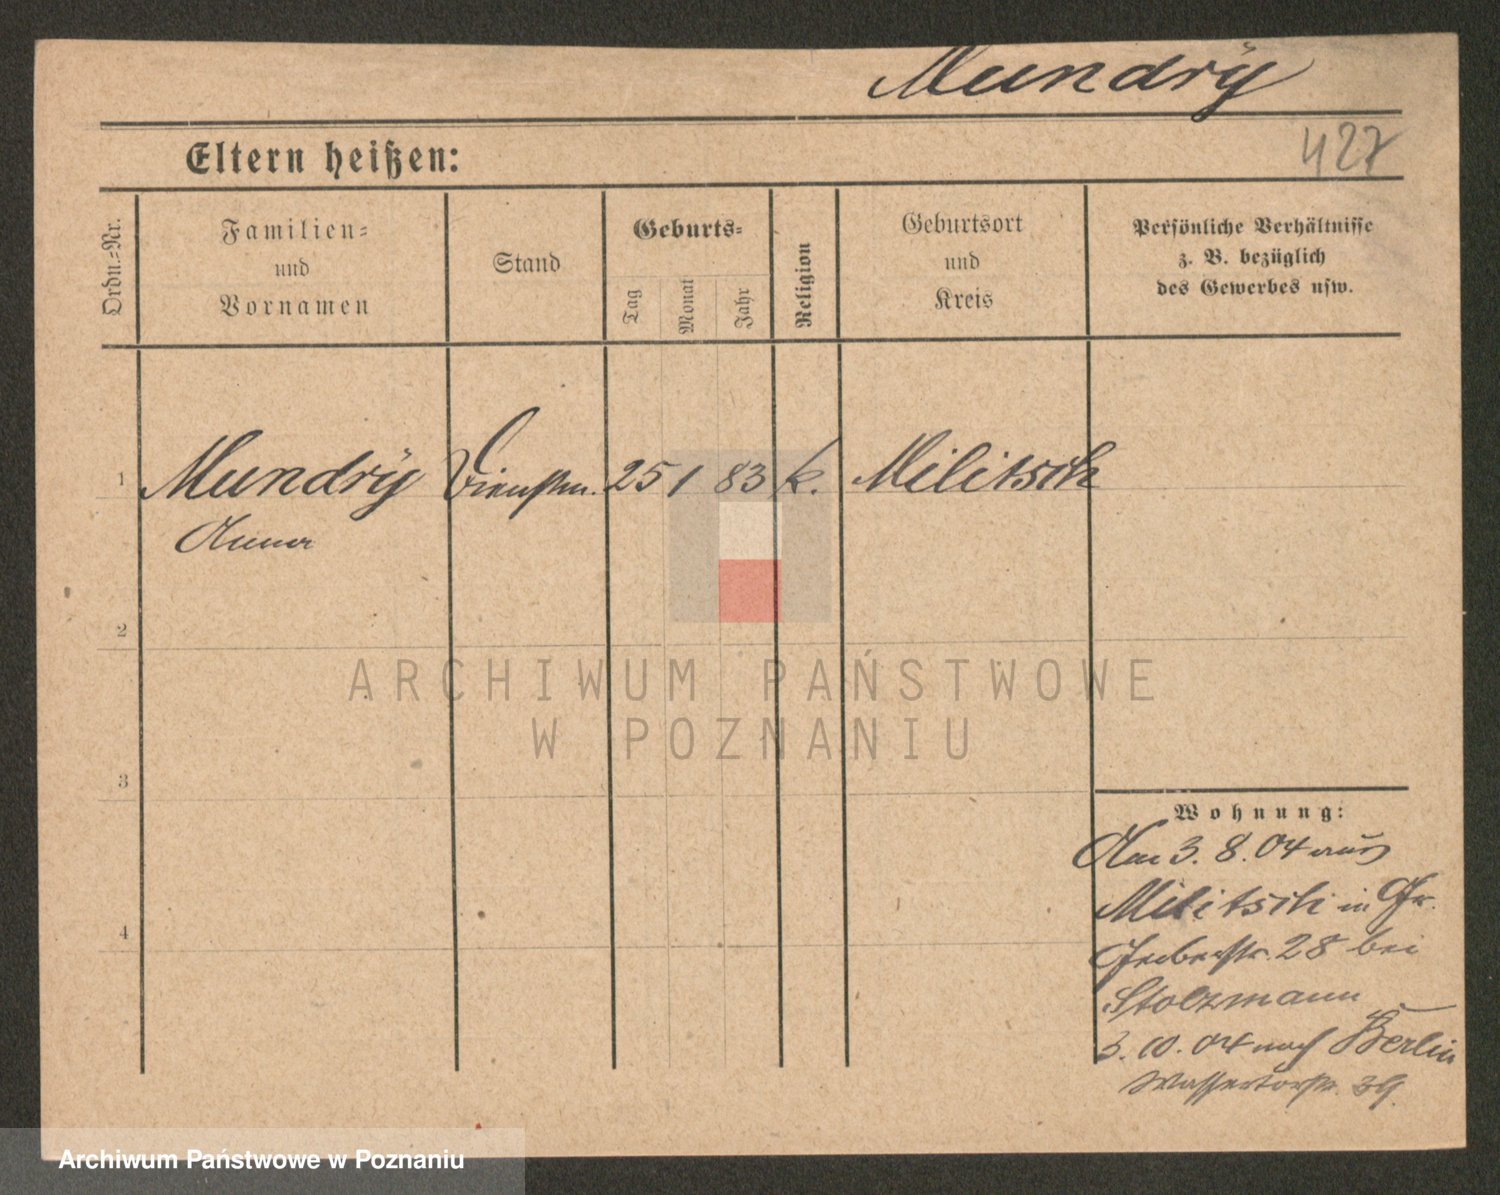 Mundrÿ
427
Eltern heißen:
Ordn.-Nr.
Familien-
und
Vornamen
Stand
Geburts-
Tag
Monat
Jahr
Religion
Geburtsort
und
Kreis
Persönliche Verhältnisse
z. B. bezüglich
des Gewerbes usw.
1 Mundrÿ Dienstm. 25 1 83 k. Militsch
Anna
2
3
4
ARCHIWUM PAŃSTWOWE
W POZNANIU
Wohnung:
Am 3. 8. 04 aus
Militsch in Gr.
28 bei
Stolzmann
3. 10. 04 nach Berlin
Wassertorstr. 39.
Archiwum Państwowe w Poznaniu